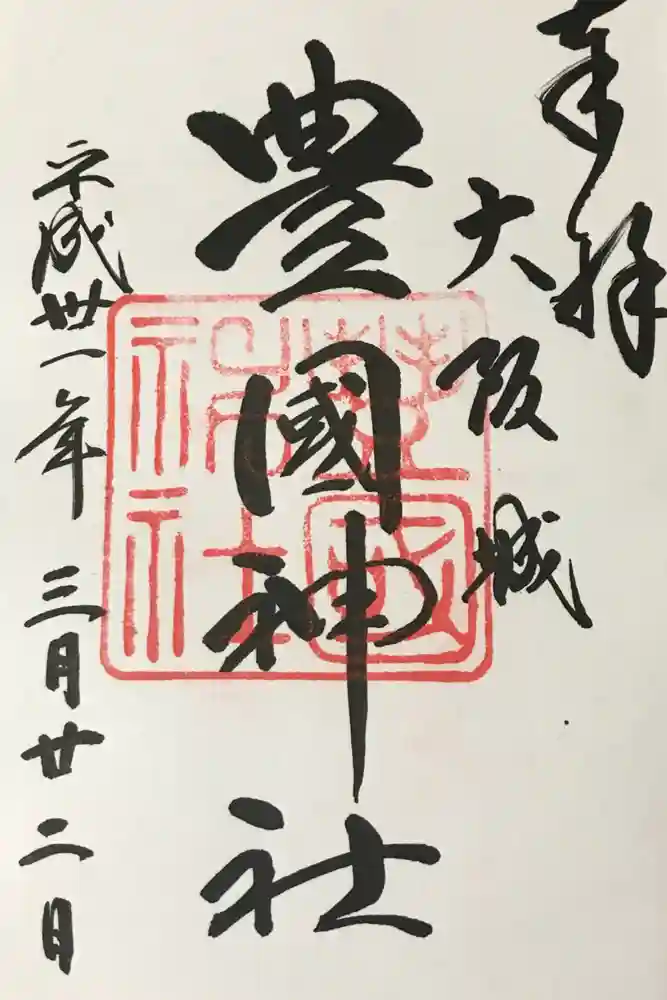 奉拝
大阪城
豊國神社
平成丗一年三月廿二日
豐國
神社